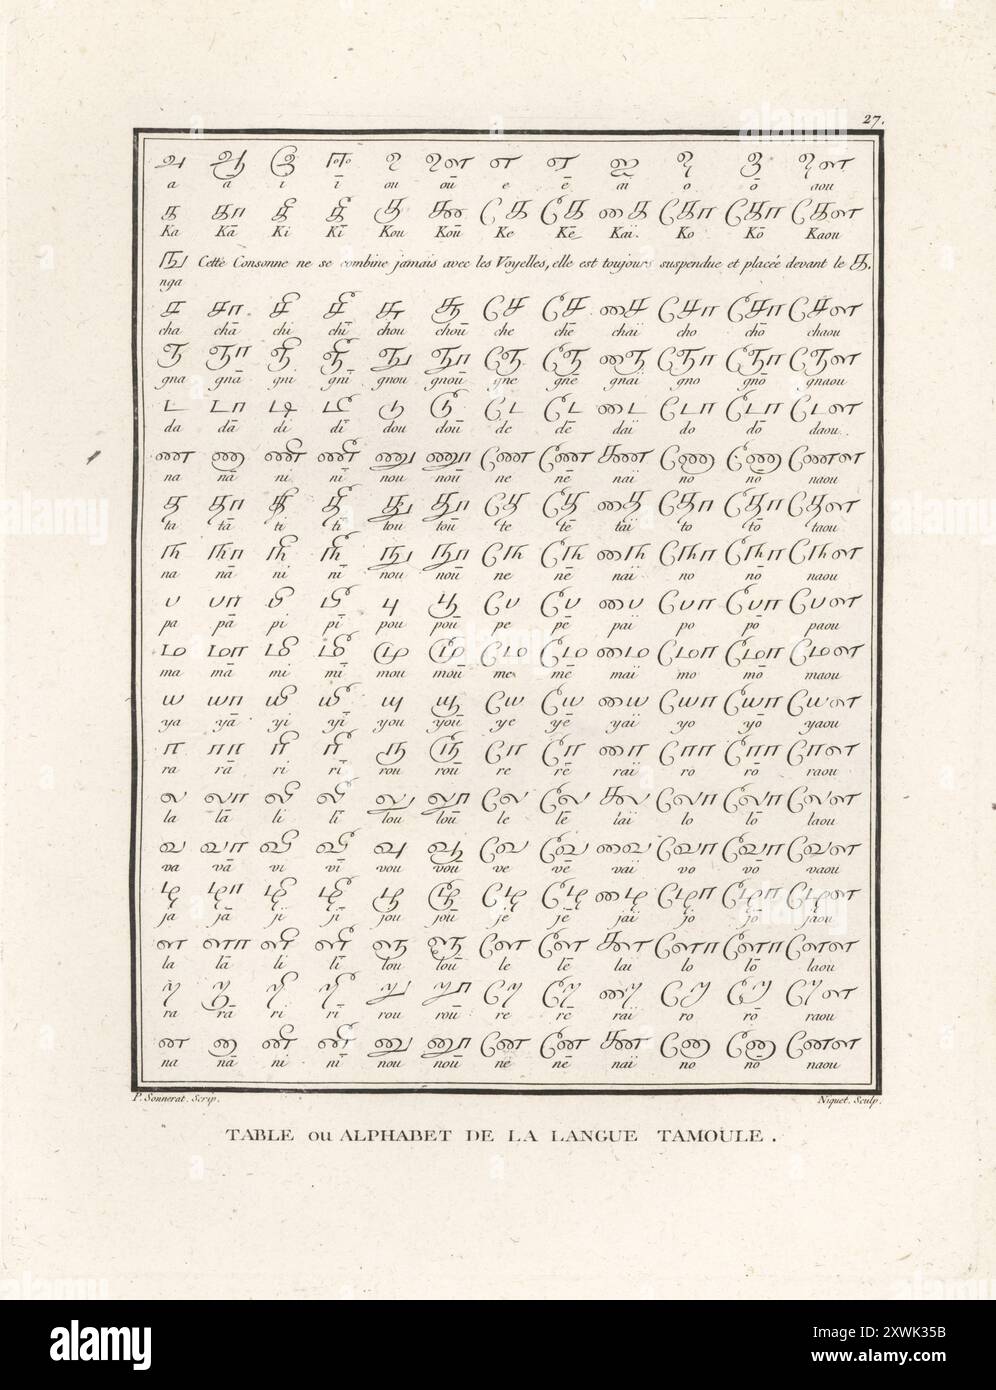 27.
அ ஆ இ ஈ உ ஊ எ ஏ ஐ ஒ ஓ ஔ
a ā i ī ou oū e ē aï o ō aou
க கா கி கீ கு கூ கெ கே கை கொ கோ கௌ
Ka Kā Ki Kī Kou Koū Ke Kē Kaï Ko Kō Kaou
ங Cette Consonne ne se combine jamais avec les Voyelles, elle est toujours suspendue et placée devant le க.
nga
ச சா சி சீ சு சூ செ சே சை சொ சோ சௌ
cha chā chi chī chou choū che chē chaï cho chō chaou
ஞ ஞா ஞி ஞீ ஞு ஞூ ஞெ ஞே ஞை ஞொ ஞோ ஞௌ
gna gnā gni gnī gnou gnoū gne gnē gnaï gno gnō gnaou
ட டா டி டீ டு டூ டெ டே டை டொ டோ டௌ
da dā di dī dou doū de dē daï do dō daou.
ண ணா ணி ணீ ணு ணூ ணெ ணே ணை ணொ ணோ ணௌ
na nā ni nī nou noū ne nē naï no nō naou
த தா தி தீ து தூ தெ தே தை தொ தோ தௌ
ta tā ti tī tou toū te tē taï to tō taou
ந நா நி நீ நு நூ நெ நே நை நொ நோ நௌ
na nā ni nī nou noū ne nē naï no nō naou
ப பா பி பீ பு பூ பெ பே பை பொ போ பௌ
pa pā pi pī pou poū pe pē paï po pō paou
ம மா மி மீ மு மூ மெ மே மை மொ மோ மௌ
ma mā mi mī mou moū me mē maï mo mō maou
ய யா யி யீ யு யூ யெ யே யை யொ யோ யௌ
ya yā yi yī you yoū ye yē yaï yo yō yaou
ர ரா ரி ரீ ரு ரூ ரெ ரே ரை ரொ ரோ ரௌ
ra rā ri rī rou roū re rē raï ro rō raou
ல லா லி லீ லு லூ லெ லே லை லொ லோ லௌ
la lā li lī lou loū le lē laï lo lō laou
வ வா வி வீ வு வூ வெ வே வை வொ வோ வௌ
va vā vi vī vou voū ve vē vaï vo vō vaou
ழ ழா ழி ழீ ழு ழூ ழெ ழே ழை ழொ ழோ ழௌ
ja jā ji jī jou joū je jē jaï jo jō jaou
ள ளா ளி ளீ ளு ளூ ளெ ளே ளை ளொ ளோ ளௌ
la lā li lī lou loū le lē lai lo lō laou
ற றா றி றீ று றூ றெ றே றை றொ றோ றௌ
ra rā ri rī rou roū re rē raï ro rō raou
ன னா னி னீ னு னூ னெ னே னை னொ னோ னௌ
na nā ni nī nou noū ne nē naï no nō naou
P. Sonnerat. Scrip. Niquet. Sculp.
TABLE ou ALPHABET DE LA LANGUE TAMOULE.
alamy
Image ID: 2XWK35B
www.alamy.com